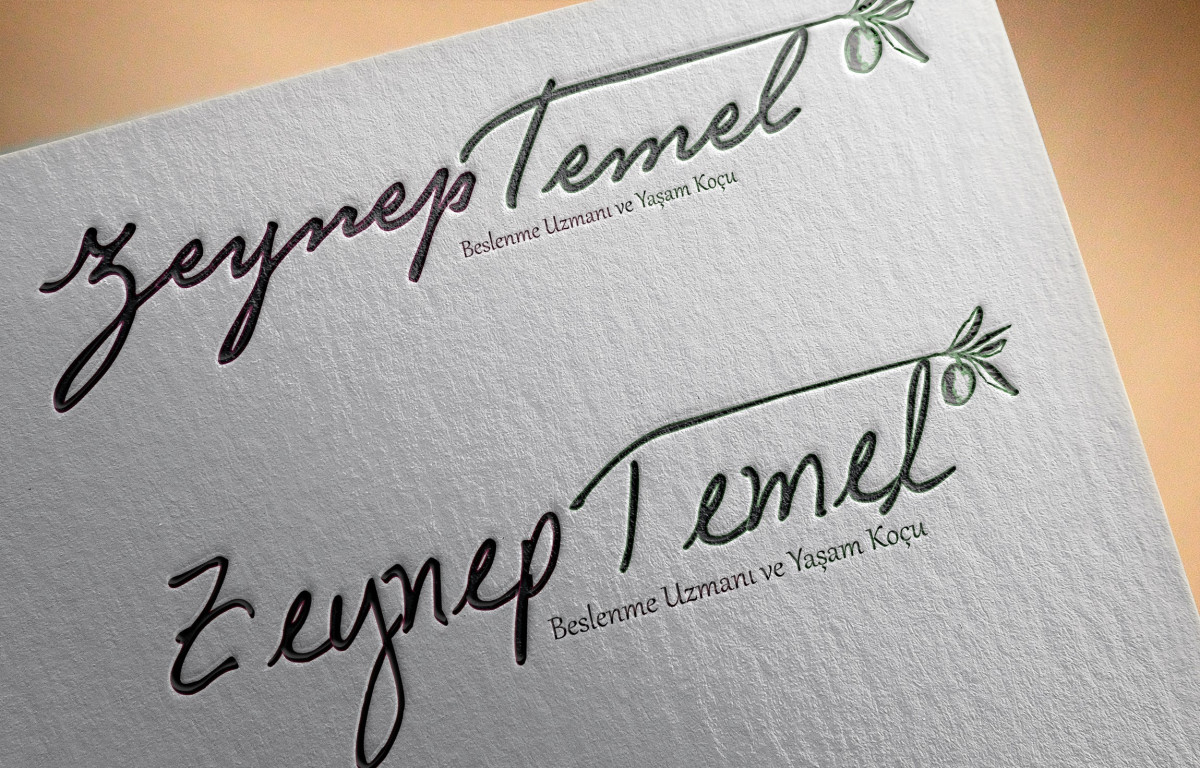 Zeynep Temel
Beslenme Uzmanı ve Yaşam Koçu
Zeynep Temel
Beslenme Uzmanı ve Yaşam Koçu